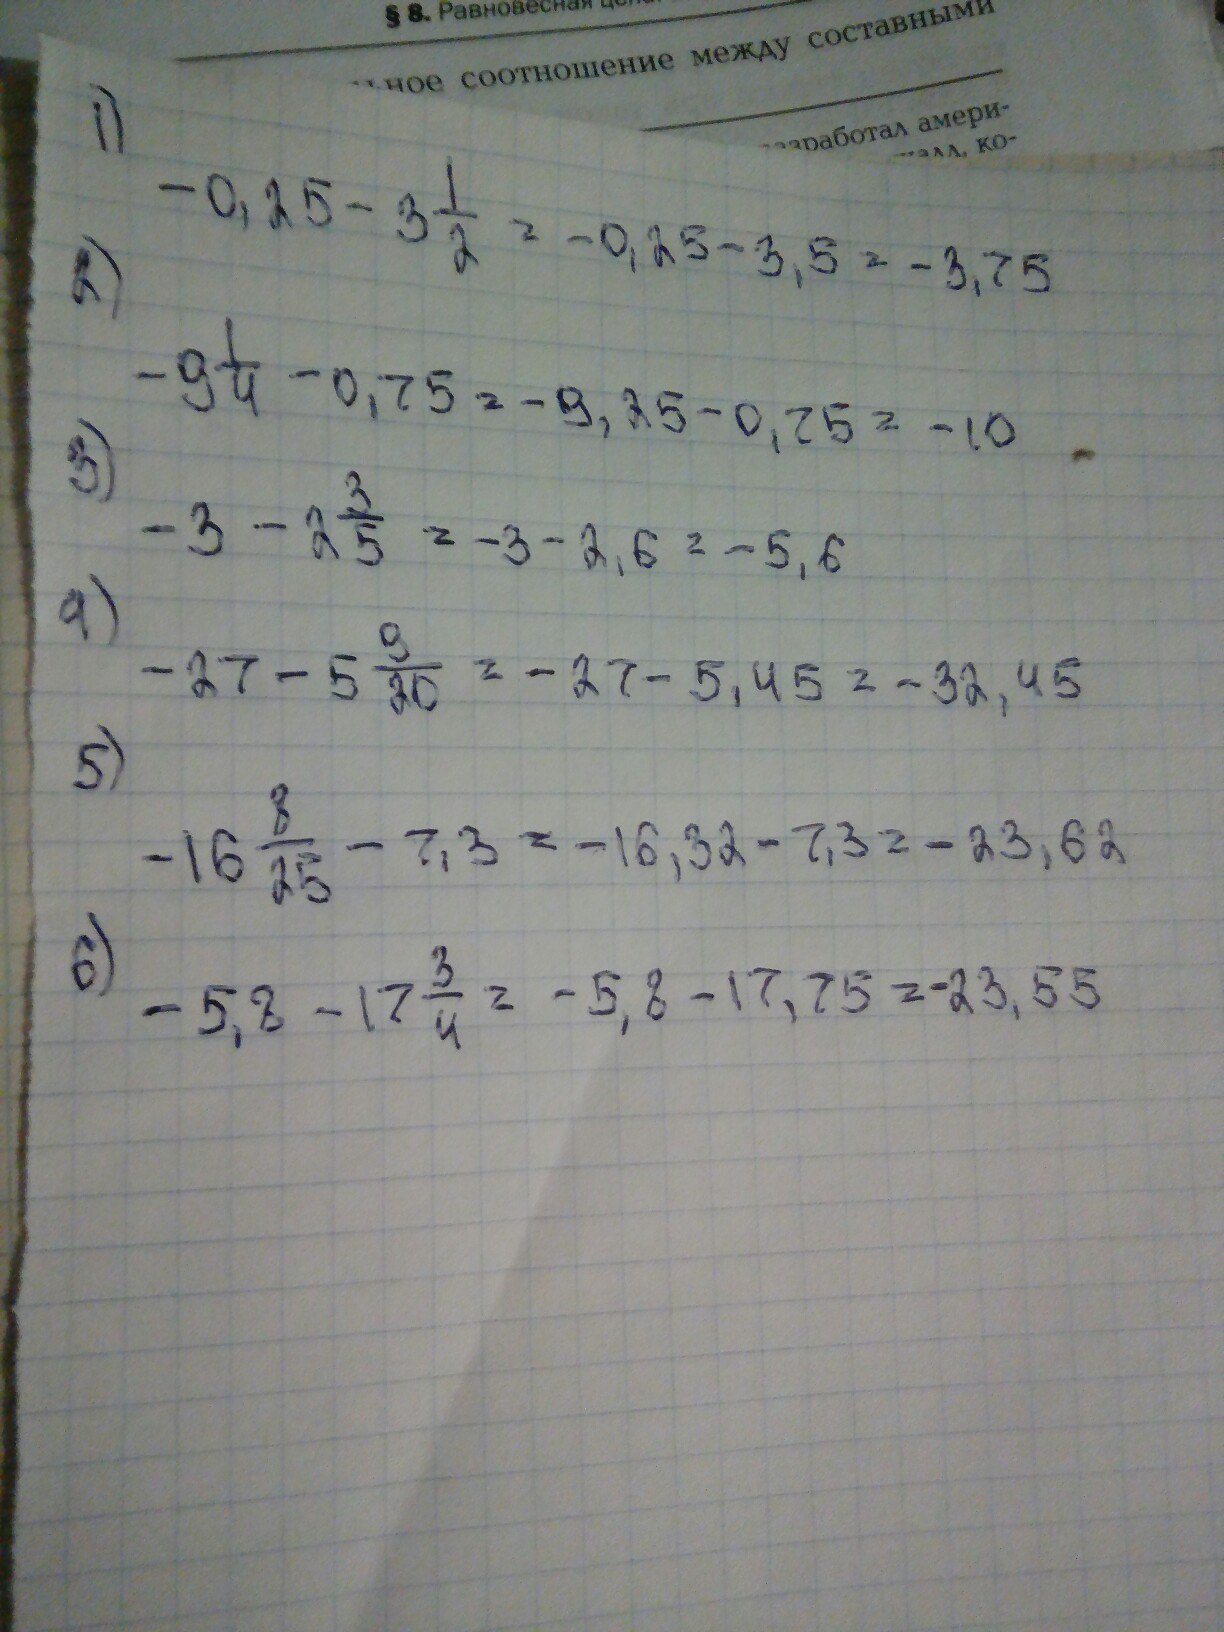 § 8. Равновесная цена.
ное соотношение между составными
разработал амери-
ко-
1)
-0,25 - 3 1/2 = -0,25 - 3,5 = -3,75
2)
-9 1/4 - 0,75 = -9,25 - 0,75 = -10
3)
-3 - 2 3/5 = -3 - 2,6 = -5,6
4)
-27 - 5 9/20 = -27 - 5,45 = -32,45
5)
-16 8/25 - 7,3 = -16,32 - 7,3 = -23,62
6)
-5,8 - 17 3/4 = -5,8 - 17,75 = -23,55